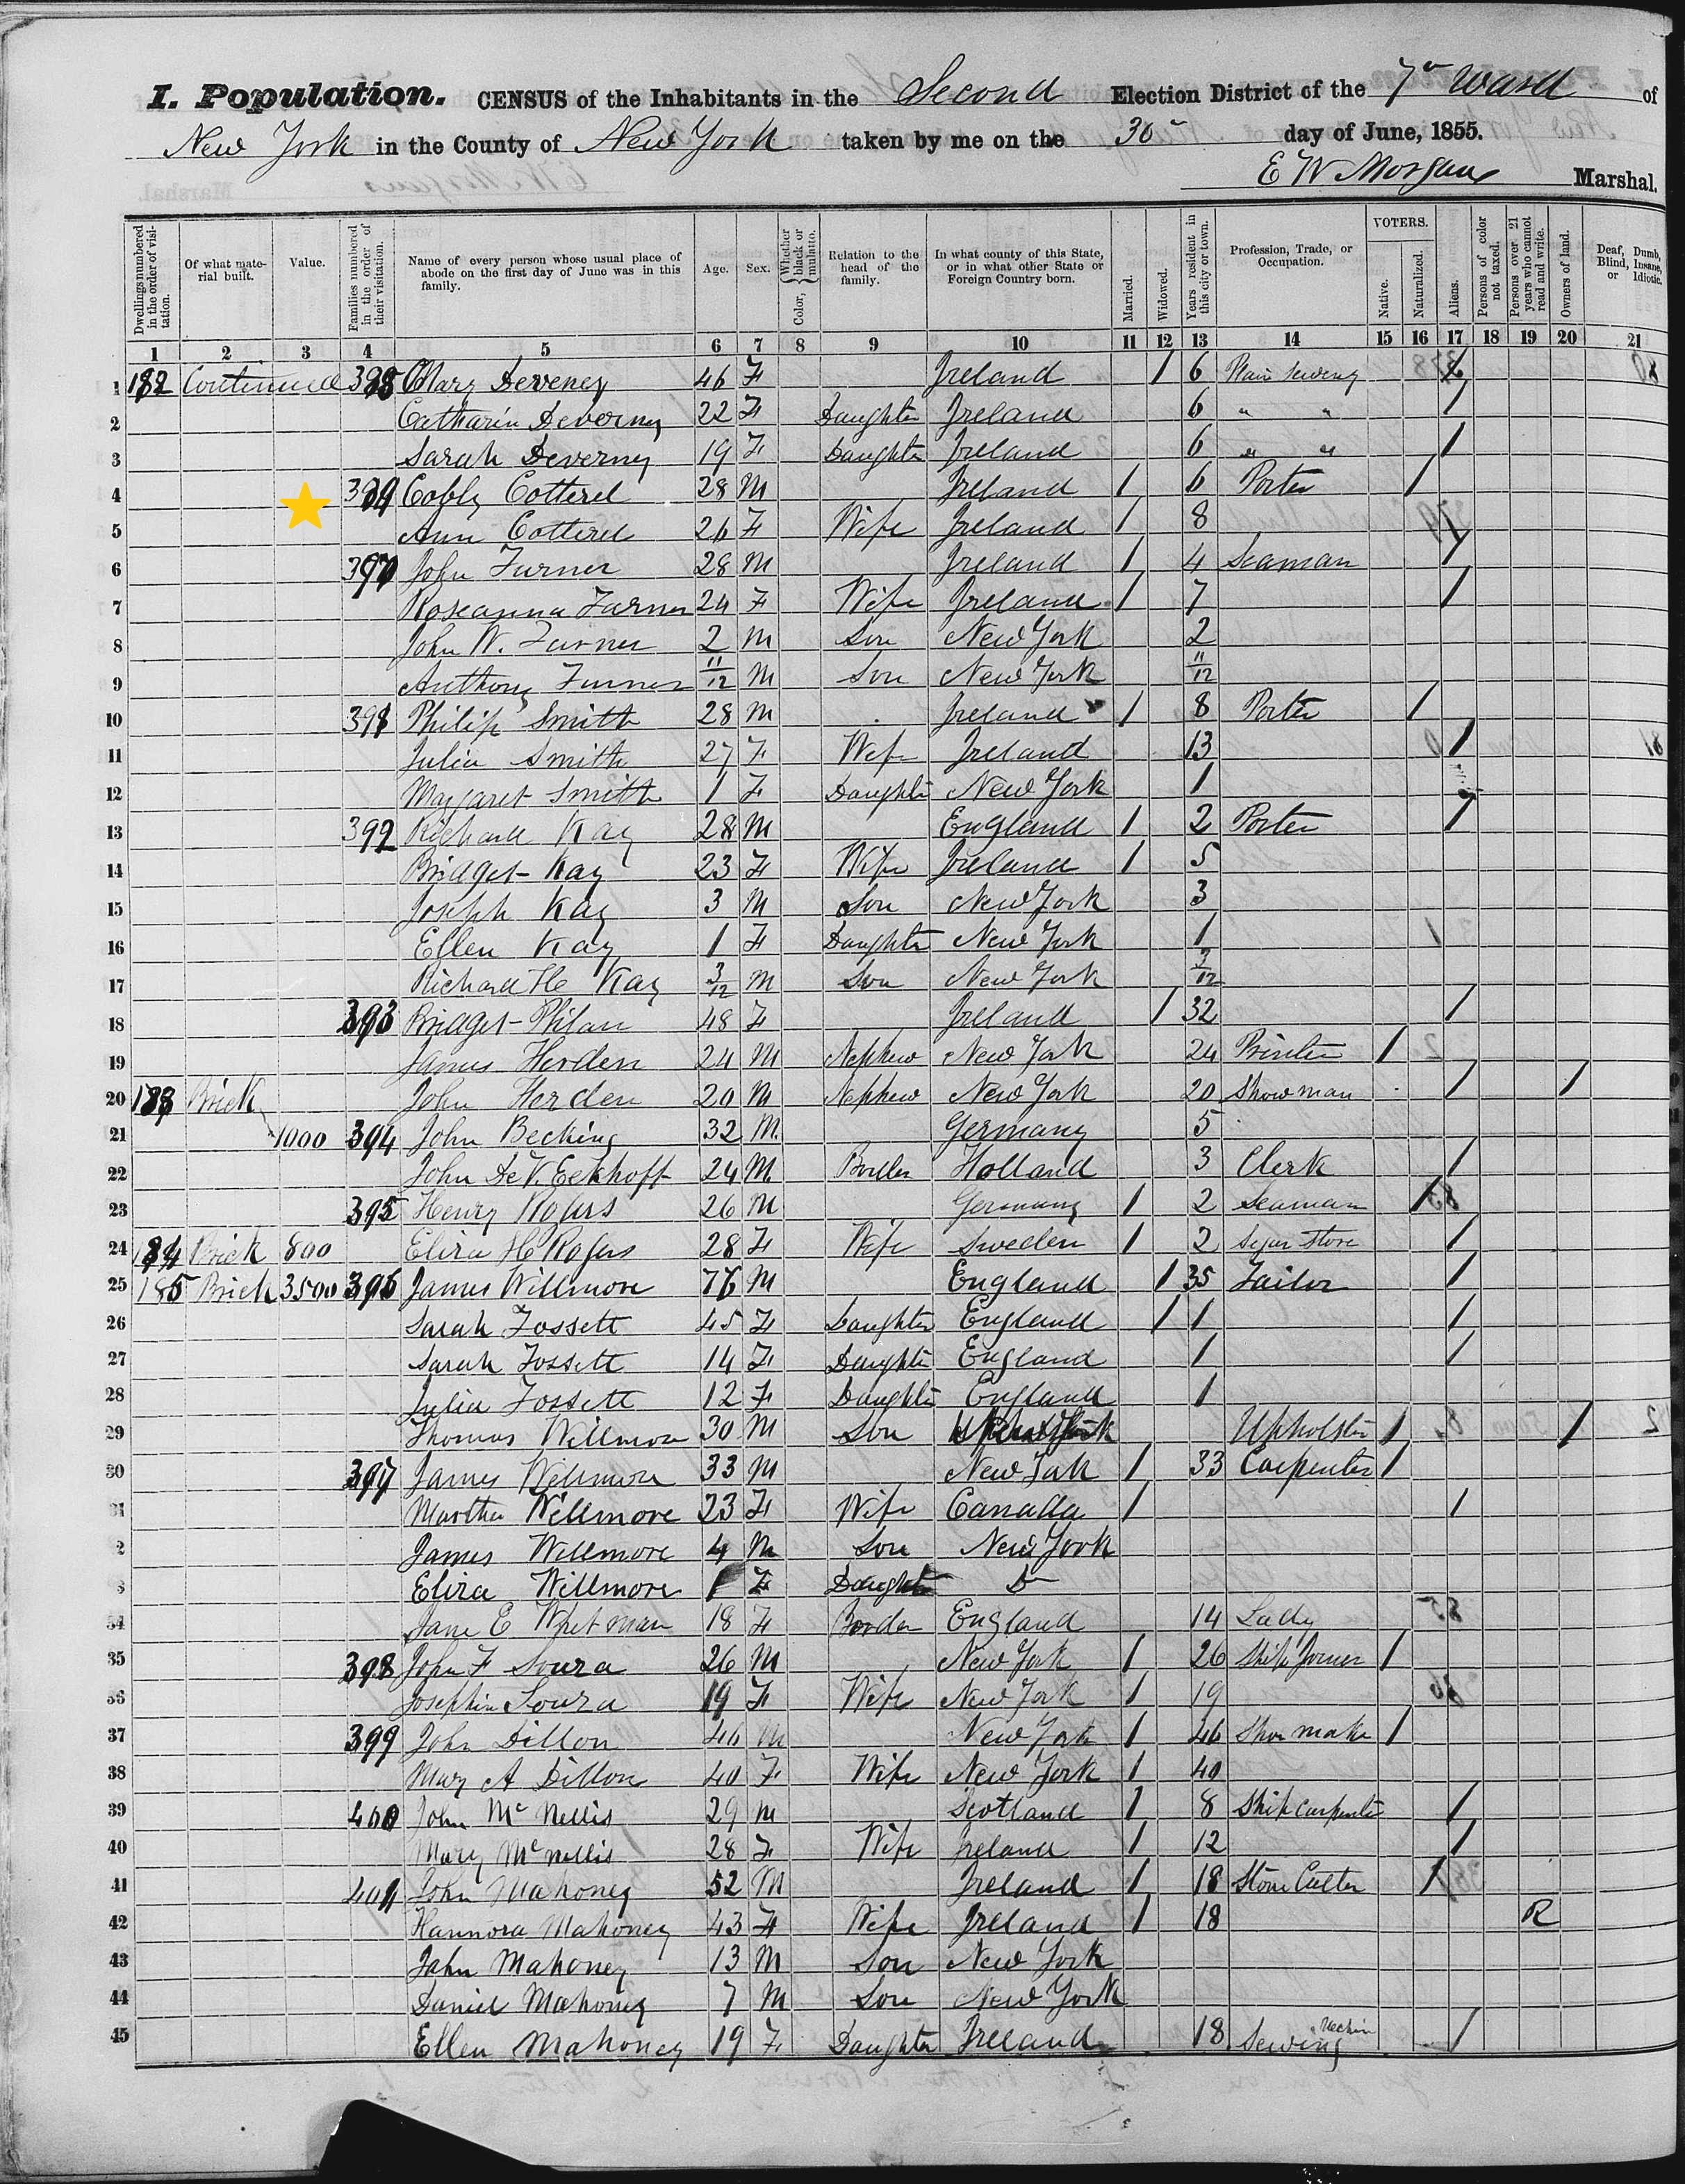 I. Population. CENSUS of the Inhabitants in the Second Election District of the 7" Ward of
New York in the County of New York taken by me on the 30" day of June, 1855.
E W Morgan Marshal.
Dwellings numbered in the order of visitation. Of what material built. Value. Families numbered in the order of their visitation. Name of every person whose usual place of abode on the first day of June was in this family. Age. Sex. Color, Whether black or mulatto. Relation to the head of the family. In what county of this State, or in what other State or Foreign Country born. Married. Widowed. Years resident in this city or town. Profession, Trade, or Occupation. VOTERS. Native. Naturalized. Aliens. Persons of color not taxed. Persons over 21 years who cannot read and write. Owners of land. Deaf, Dumb, Blind, Insane, or Idiotic.
1 2 3 4 5 6 7 8 9 10 11 12 13 14 15 16 17 18 19 20 21
1 182 Continued Mary Deveney 46 F Ireland 1 6 Plain Sewing
2 Catharin Deverny 22 F Daughter Ireland 6 " " 1
3 Sarah Deverny 19 F Daughter Ireland 6 " " 1
4 Cotterel 28 M Ireland 1 6 Porter 1
5 Ann Cotterel 26 F Wife Ireland 1 8 1
6 John Turner 28 M Ireland 1 4 Seaman 1
7 Roseanna Turner 24 F Wife Ireland 1 7 1
8 John W. Turner 2 M Son New York 2
9 Anthony Turner 11/12 M Son New York 11/12
10 391 Philip Smith 28 M Ireland 1 8 Porter 1
11 Julia Smith 27 F Wife Ireland 13 1
12 Margaret Smith 1 F Daughter New York 1
13 392 Richard Kay 28 M England 1 2 Porter 1
14 Bridget Kay 23 F Wife Ireland 1 5
15 Joseph Kay 3 M Son New York 3
16 Ellen Kay 1 F Daughter New York 1
17 Richard H Kay 3/12 M Son New York 3/12
18 393 Bridget Philan 48 F Ireland 1 32 1
19 James Herden 24 M Nephew New York 24 Printer 1
20 183 Brick John Herden 20 M Nephew New York 20 Show man 1 1
21 1000 394 John Becking 32 M Germany 5
22 John DeV. Eekhoff 24 M Border Holland 3 Clerk 1
23 395 Henry Rogers 26 M Germany 1 2 Seaman 1
24 184 Brick 800 Eliza H Rogers 28 F Wife Sweden 1 2 Segar Store 1
25 185 Brick 3500 396 James Willmore 76 M England 1 35 Tailor 1
26 Sarah Fossett 45 F Daughter England 1 1 1
27 Sarah Fossett 14 F Daughter England 1 1
28 Julia Fossett 12 F Daughter England 1
29 Thomas Willmore 30 M Son Upholster 1 1
30 397 James Willmore 33 M New York 1 33 Carpenter 1
31 Martha Willmore 23 F Wife Canada 1 1
2 James Willmore 4 M Son New York
3 Eliza Willmore 1 F Daughter Do
34 Jane E Whetman 18 F Border England 14 Lady
35 398 John F Soura 26 M New York 1 26 Ship Joiner 1
36 Josephin Soura 19 F Wife New York 1 19
37 399 John Dillon 46 M New York 1 46 Shoe maker 1
38 Mary A Dillon 40 F Wife New York 1 40
39 400 John McNellis 29 M Scotland 1 8 Ship carpenter 1
40 Mary McNellis 28 F Wife Ireland 1 12 1
41 401 John Mahoney 52 M Ireland 1 18 Stone Cutter 1
42 Hannora Mahoney 43 F Wife Ireland 1 18 R
43 John Mahoney 13 M Son New York
44 Daniel Mahoney 7 M Son New York
45 Ellen Mahoney 19 F Daughter Ireland 18 Sewing Machin 1